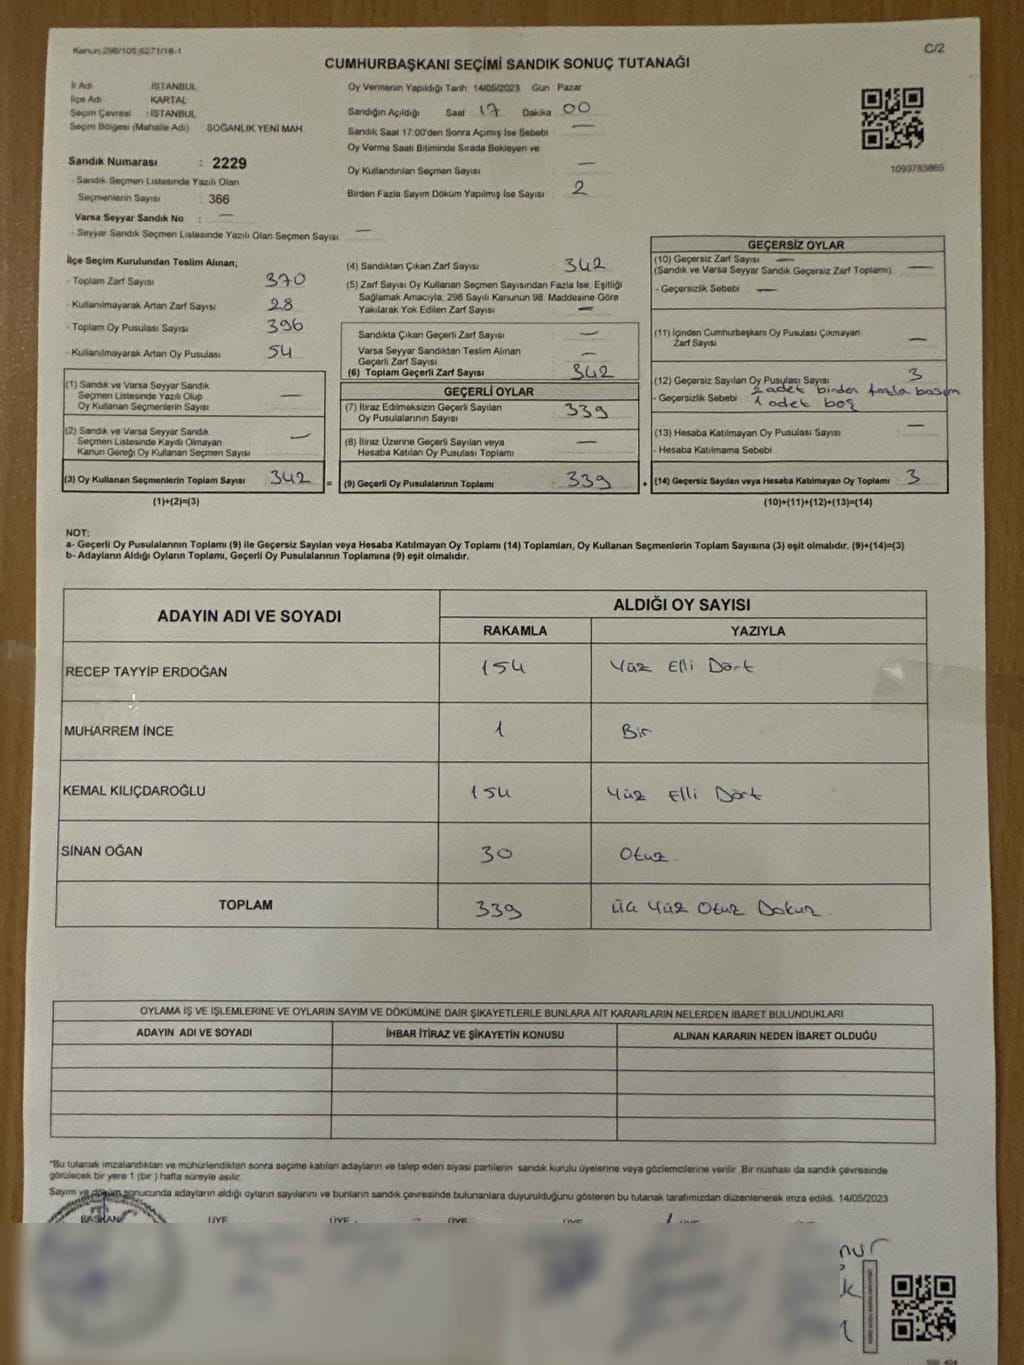 Kanun:298/105;6271/18-1
C/2
CUMHURBAŞKANI SEÇİMİ SANDIK SONUÇ TUTANAĞI
İl Adı İSTANBUL
İlçe Adı KARTAL
Seçim Çevresi : İSTANBUL
Seçim Bölgesi (Mahalle Adı) SOĞANLIK YENİ MAH.
Sandık Numarası : 2229
- Sandık Seçmen Listesinde Yazılı Olan
Seçmenlerin Sayısı 366
Varsa Seyyar Sandık No : —
- Seyyar Sandık Seçmen Listesinde Yazılı Olan Seçmen Sayısı —
Oy Vermenin Yapıldığı Tarih 14/05/2023 Gün Pazar
Sandığın Açıldığı Saat 17 Dakika 00
Sandık Saat 17:00'den Sonra Açımış İse Sebebi —
Oy Verme Saati Bitiminde Sırada Bekleyen ve
Oy Kullandırılan Seçmen Sayısı —
Birden Fazla Sayım Döküm Yapılmış İse Sayısı 2
1093783865
İlçe Seçim Kurulundan Teslim Alınan;
- Toplam Zarf Sayısı 370
- Kullanılmayarak Artan Zarf Sayısı 28
- Toplam Oy Pusulası Sayısı 396
- Kullanılmayarak Artan Oy Pusulası 54
(1) Sandık ve Varsa Seyyar Sandık
Seçmen Listesinde Yazılı Olup
Oy Kullanan Seçmenlerin Sayısı —
(2) Sandık ve Varsa Seyyar Sandık
Seçmen Listesinde Kayıtlı Olmayan
Kanun Gereği Oy Kullanan Seçmen Sayısı —
(3) Oy Kullanan Seçmenlerin Toplam Sayısı 342
=
(1)+(2)=(3)
(4) Sandıktan Çıkan Zarf Sayısı 342
(5) Zarf Sayısı Oy Kullanan Seçmen Sayısından Fazla İse, Eşitliği
Sağlamak Amacıyla; 298 Sayılı Kanunun 98. Maddesine Göre
Yakılarak Yok Edilen Zarf Sayısı —
Sandıkta Çıkan Geçerli Zarf Sayısı —
Varsa Seyyar Sandıktan Teslim Alınan
Geçerli Zarf Sayısı —
(6) Toplam Geçerli Zarf Sayısı 342
GEÇERLİ OYLAR
(7) İtiraz Edilmeksizin Geçerli Sayılan
Oy Pusulalarının Sayısı 339
(8) İtiraz Üzerine Geçerli Sayılan veya
Hesaba Katılan Oy Pusulası Toplamı —
(9) Geçerli Oy Pusulalarının Toplamı 339
+
GEÇERSİZ OYLAR
(10) Geçersiz Zarf Sayısı —
(Sandık ve Varsa Seyyar Sandık Geçersiz Zarf Toplamı) —
- Geçersizlik Sebebi —
(11) İçinden Cumhurbaşkanı Oy Pusulası Çıkmayan
Zarf Sayısı —
(12) Geçersiz Sayılan Oy Pusulası Sayısı 3
- Geçersizlik Sebebi 2 adet birden fazla basım
1 adet boş
(13) Hesaba Katılmayan Oy Pusulası Sayısı —
- Hesaba Katılmama Sebebi
(14) Geçersiz Sayılan veya Hesaba Katılmayan Oy Toplamı 3
(10)+(11)+(12)+(13)=(14)
NOT:
a- Geçerli Oy Pusulalarının Toplamı (9) ile Geçersiz Sayılan veya Hesaba Katılmayan Oy Toplamı (14) Toplamları, Oy Kullanan Seçmenlerin Toplam Sayısına (3) eşit olmalıdır. (9)+(14)=(3)
b- Adayların Aldığı Oyların Toplamı, Geçerli Oy Pusulalarının Toplamına (9) eşit olmalıdır.
ADAYIN ADI VE SOYADI
ALDIĞI OY SAYISI
RAKAMLA YAZIYLA
RECEP TAYYİP ERDOĞAN 154 Yüz Elli Dört
MUHARREM İNCE 1 Bir
KEMAL KILIÇDAROĞLU 154 Yüz Elli Dört
SİNAN OĞAN 30 Otuz
TOPLAM 339 Üç Yüz Otuz Dokuz
OYLAMA İŞ VE İŞLEMLERİNE VE OYLARIN SAYIM VE DÖKÜMÜNE DAİR ŞİKAYETLERLE BUNLARA AİT KARARLARIN NELERDEN İBARET BULUNDUKLARI
ADAYIN ADI VE SOYADI İHBAR İTİRAZ VE ŞİKAYETİN KONUSU ALINAN KARARIN NEDEN İBARET OLDUĞU
"Bu tutanak imzalandıktan ve mühürlendikten sonra seçime katılan adayların ve talep eden siyasi partilerin sandık kurulu üyelerine veya gözlemcilerine verilir. Bir nüshası da sandık çevresinde
görülecek bir yere 1 (bir) hafta süreyle asılır.
Sayım ve döküm sonucunda adayların aldığı oyların sayılarını ve bunların sandık çevresinde bulunanlara duyurulduğunu gösteren bu tutanak tarafımızdan düzenlenerek imza edildi. 14/05/2023
BAŞKAN ÜYE ÜYE ÜYE ÜYE ÜYE ÜYE
nur